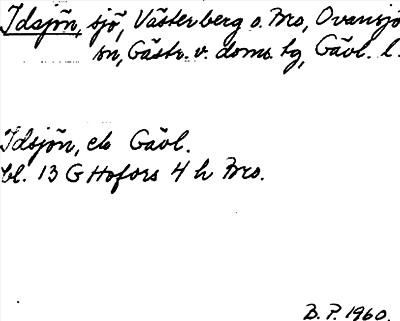 Idsjön, sjö, Västerberg o. Bro, Ovansjö
sn, Gästr. v. doms. tg, Gävl. l.
Idsjön, eb Gävl.
bl. 13 G Hofors 4 h Bro.
B. P. 1960.